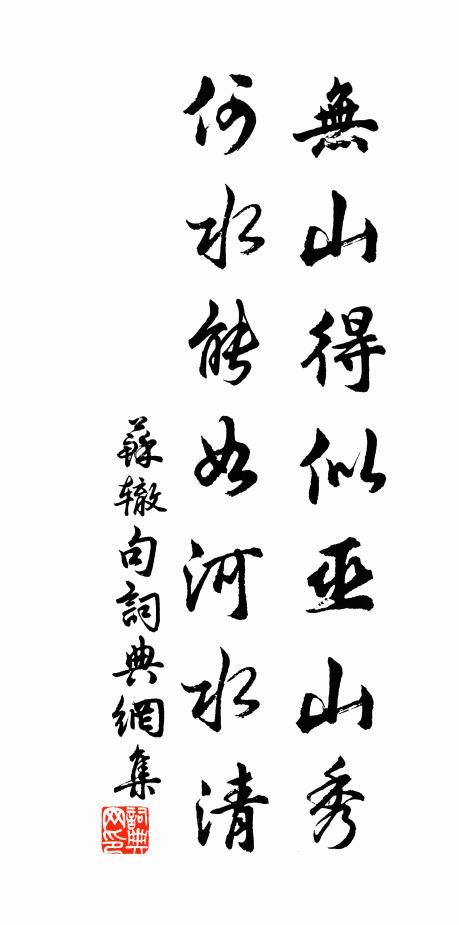 無山得似巫山秀
何水能如河水清
蘇辙句詞典網集
詞典网印